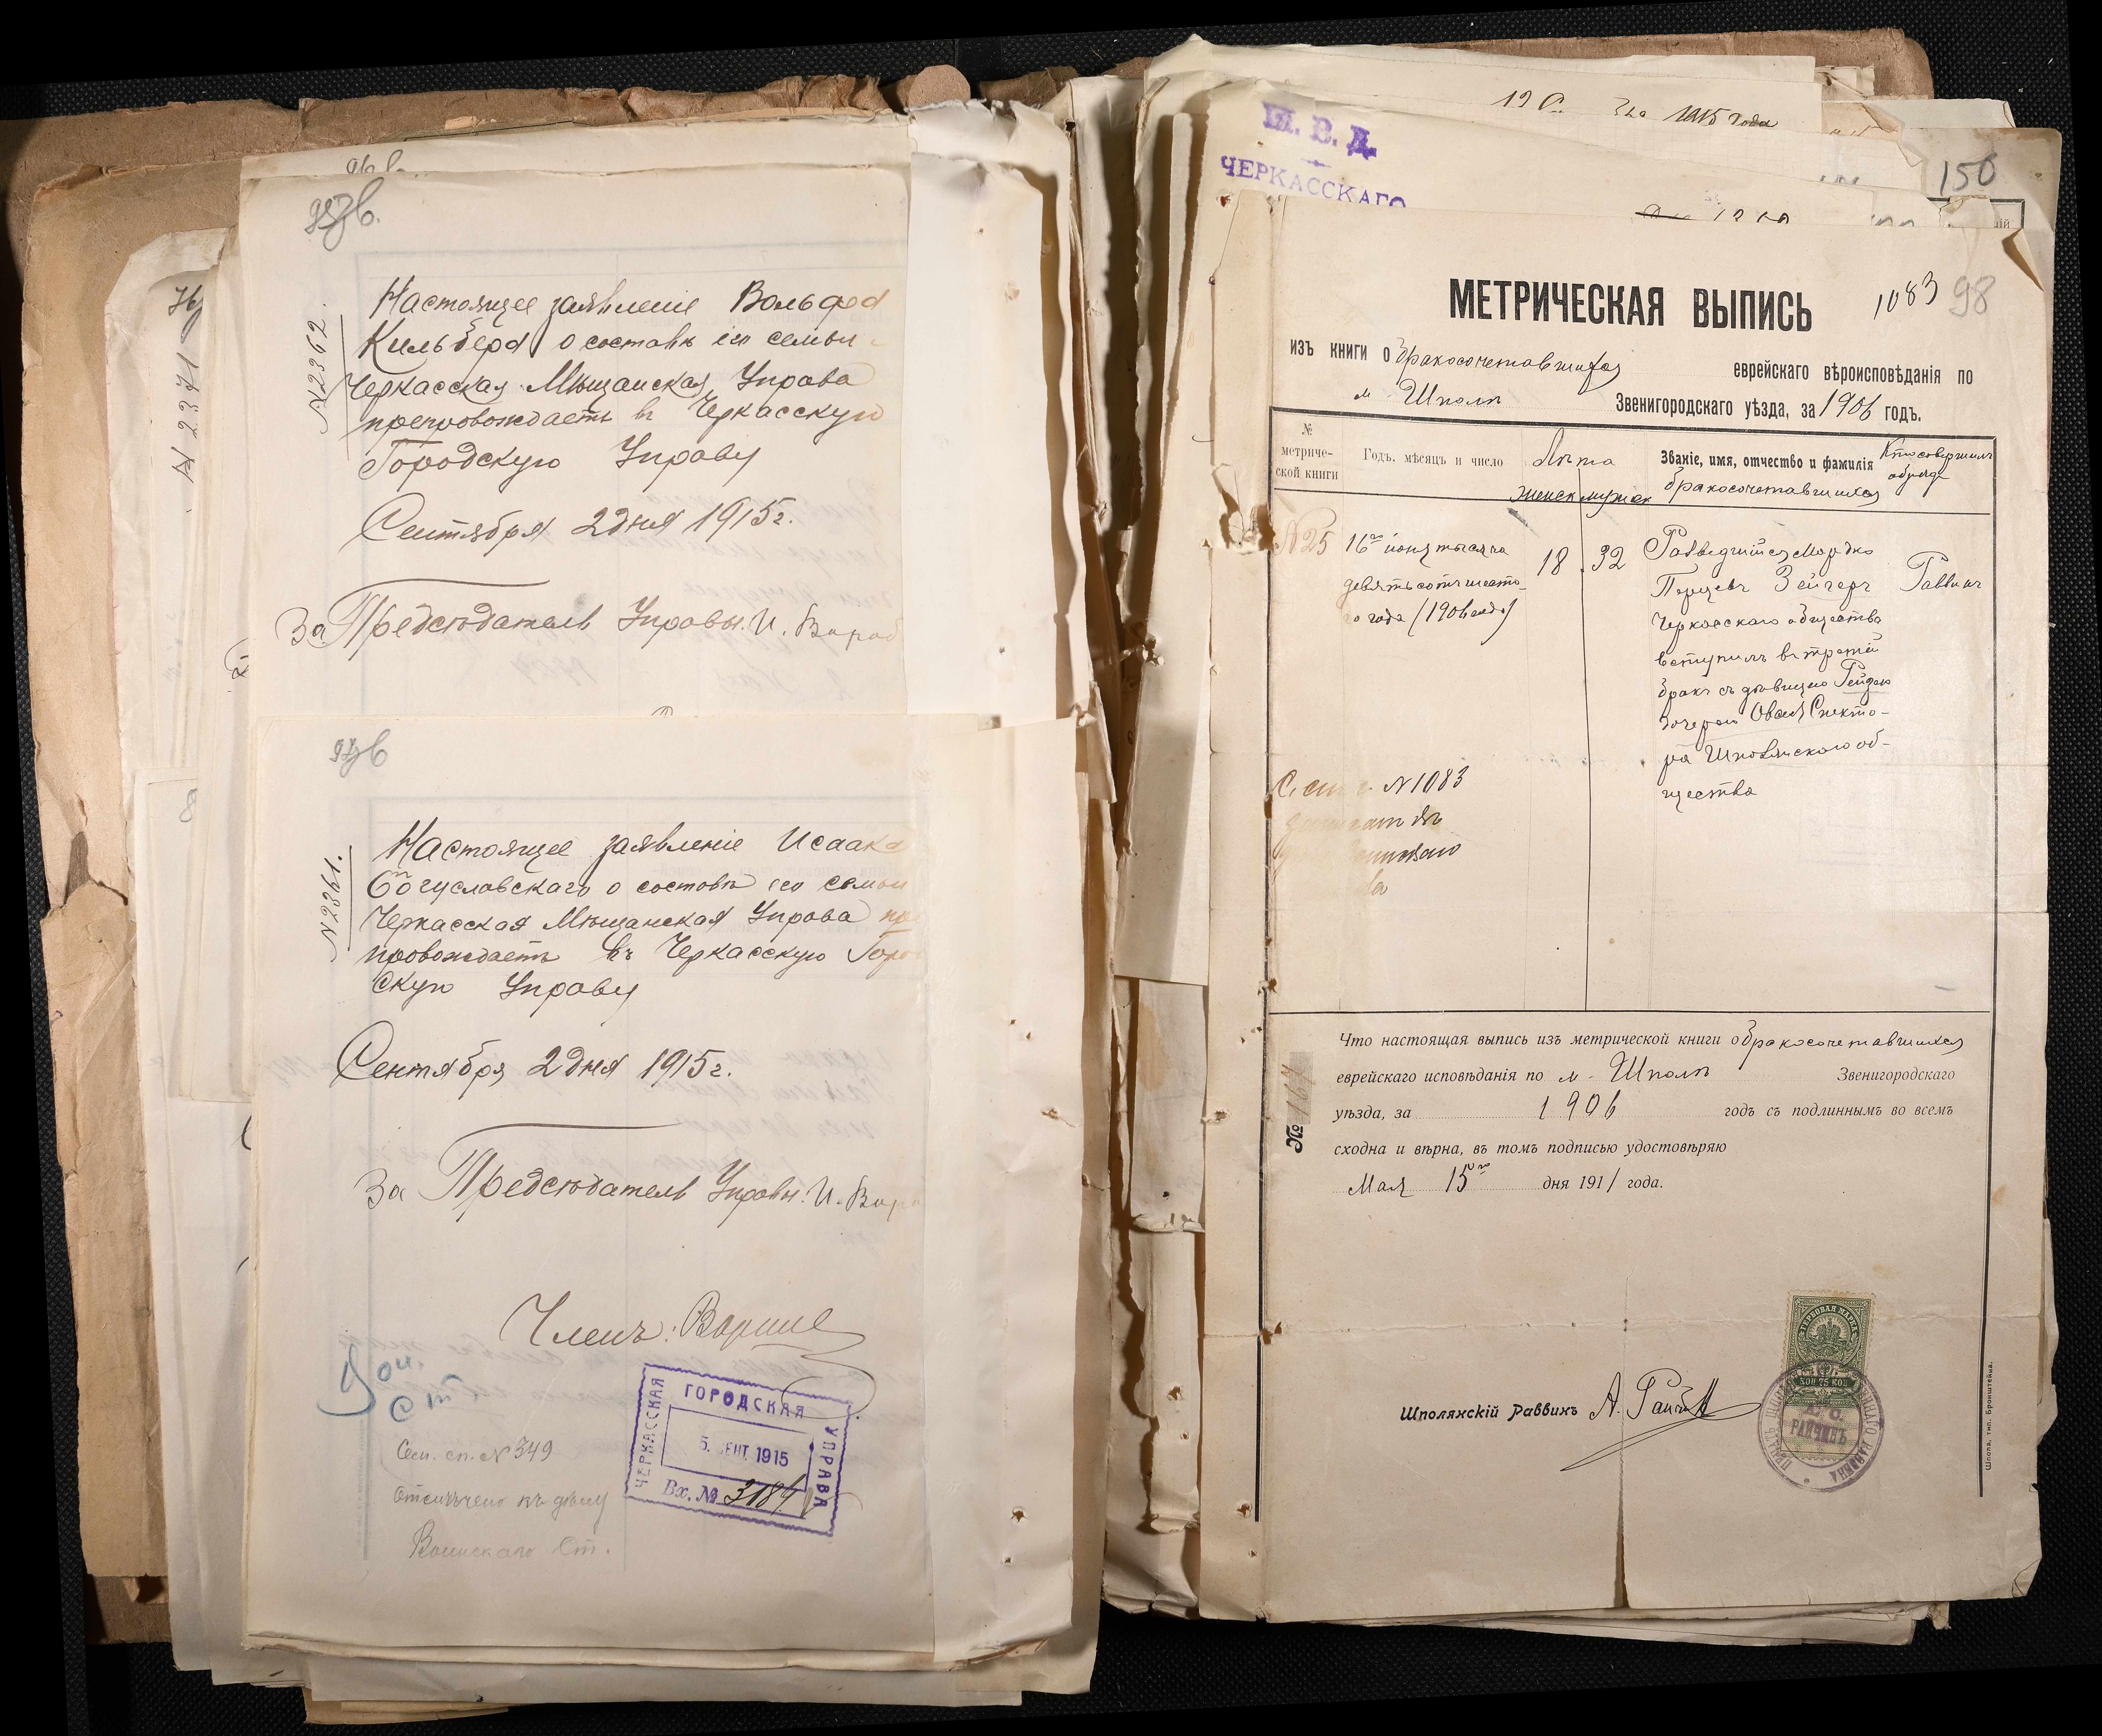 96 в.
957в.
№2362.
Настоящее заявленіе Вольфа
Кильбера о составѣ его семьи
Черкасская Мѣщанская Управа
препровождаетъ въ Черкасскую
Городскую Управу
Сентября 2 дня 1915 г.
За Председатель Управы. И.
№ 2371
№2361.
Настоящее заявленіе Исаака
Богуславскаго о составѣ его семьи
Черкасская Мѣщанская Управа пре
провождаетъ въ Черкасскую Город
скую Управу
Сентября 2 дня 1915 г.
За Председатель Управы. И.
Членъ:
Сем. сп. № 349
Отсичено къ дѣлу
Воинскаго Ст.
ЧЕРКАССКАЯ
ГОРОДСКАЯ
УПРАВА
5. СЕНТ. 1915
Вх. № 3184
1915 года
М. В. Д.
ЧЕРКАССКАГО
150
98
1083
МЕТРИЧЕСКАЯ ВЫПИСЬ
изъ книги о бракосочетавшихся еврейскаго вѣроисповѣданія по
м. Шполѣ Звенигородскаго уѣзда, за 1906 годъ.
№ метриче-ской книги
Годъ, мѣсяцъ и число
Лѣта
женск мужск
Званіе, имя, отчество и фамилія
бракосочетавшихся
Кто совершилъ
обрядъ
№25
16го іюня тысяча
девятьсотъ шесто-
го года (1906 года)
18
32
Разведшійся Мордко
Перцевъ Зейгеръ
Черкасскаго общества
вступилъ въ третій
бракъ съ дѣвицею Рейзею
дочерью Овсея Спекто-
ра Шполянскаго об-
щества
Раввинъ
№ 1083
Что настоящая выпись изъ метрической книги о бракосочетавшихся
еврейскаго исповѣданія по м. Шполѣ Звенигородскаго
уѣзда, за 1906 годъ съ подлиннымъ во всемъ
сходна и вѣрна, въ томъ подписью удостовѣряю
Мая 15го дня 1911 года.
№ 167
Шполянскій Раввинъ А. Райчинъ
ГЕРБОВАЯ МАРКА
КОП 75 КОП
РАЙЧИНЪ
Шпола, тип. Бронштейна.